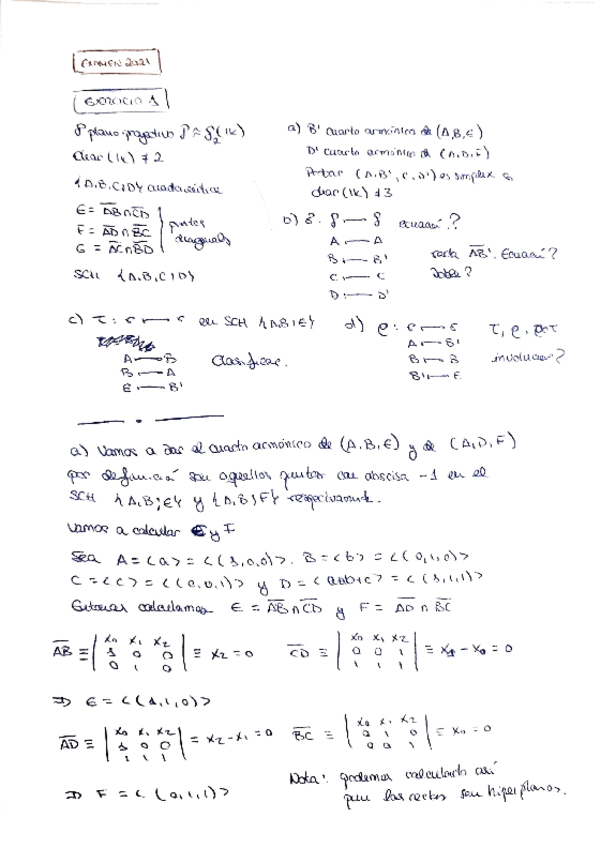 EXAMEN 2021
EXERCICIO 1
P plano proyectivo P ≈ P₂(K)
char(K) ≠ 2
{A,B,C;D} cuadrivértice
E = AB∩CD
F = AD∩BC
G = AC∩BD
puntos diagonales
SCH {A,B,C;D}
a) B' cuarto armónico de (A,B,E)
D' cuarto armónico de (A,D,F)
Probar (A,B',C,D') es simplex
char(K) ≠ 3
b) P → P ecuación?
A → A
B → B'
C → C
D → D'
recta AB'. Ecuación?
doble?
c) τ: → en SCH {A,B;E}
A → B
B → A
E → B'
Clasificar.
d) ρ: →
A → B'
B → B
B' → E
τ, ρ, ρ∘τ
involución?
a) Vamos a dar el cuarto armónico de (A,B,E) y de (A,D,F)
por definición son aquellos puntos con abscisa -1 en el
SCH {A,B;E} y {A,D;F} respectivamente.
Vamos a calcular E y F
Sea A = <a> = <(1,0,0)>. B = <b> = <(0,1,0)>
C = <c> = <(0,0,1)> y D = <a+b+c> = <(1,1,1)>
Entonces calculamos E = AB∩CD y F = AD∩BC
AB ≡ |x₀ x₁ x₂; 1 0 0; 0 1 0| ≡ x₂ = 0 CD ≡ |x₀ x₁ x₂; 0 0 1; 1 1 1| ≡ x₁ - x₀ = 0
⇒ E = <(1,1,0)>
AD ≡ |x₀ x₁ x₂; 1 0 0; 1 1 1| ≡ x₂ - x₁ = 0 BC ≡ |x₀ x₁ x₂; 0 1 0; 0 0 1| ≡ x₀ = 0
⇒ F = <(0,1,1)>
Nota: podemos calcularlo así
pues las rectas son hiperplanos.